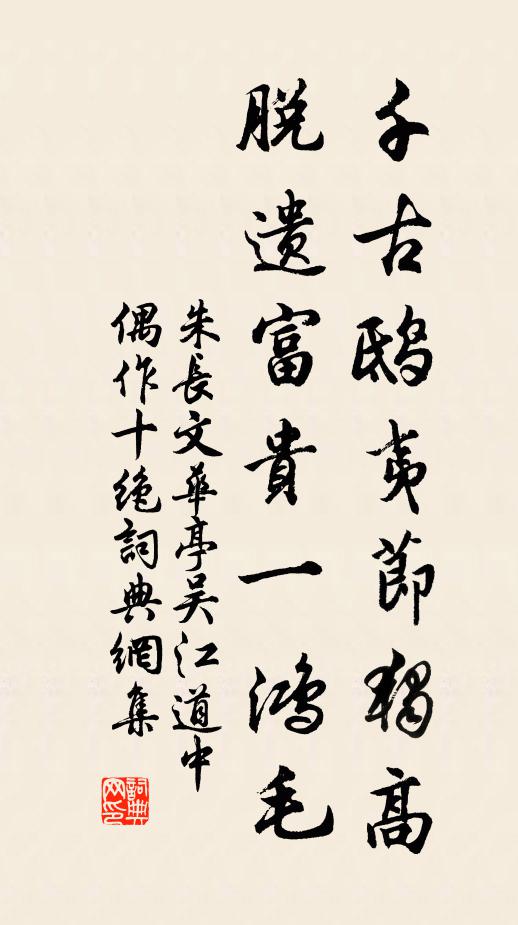 千古鴟夷節獨高
脫遺富貴一鴻毛
朱長文華亭吴江道中
偶作十絶詞典網集
詞典網印